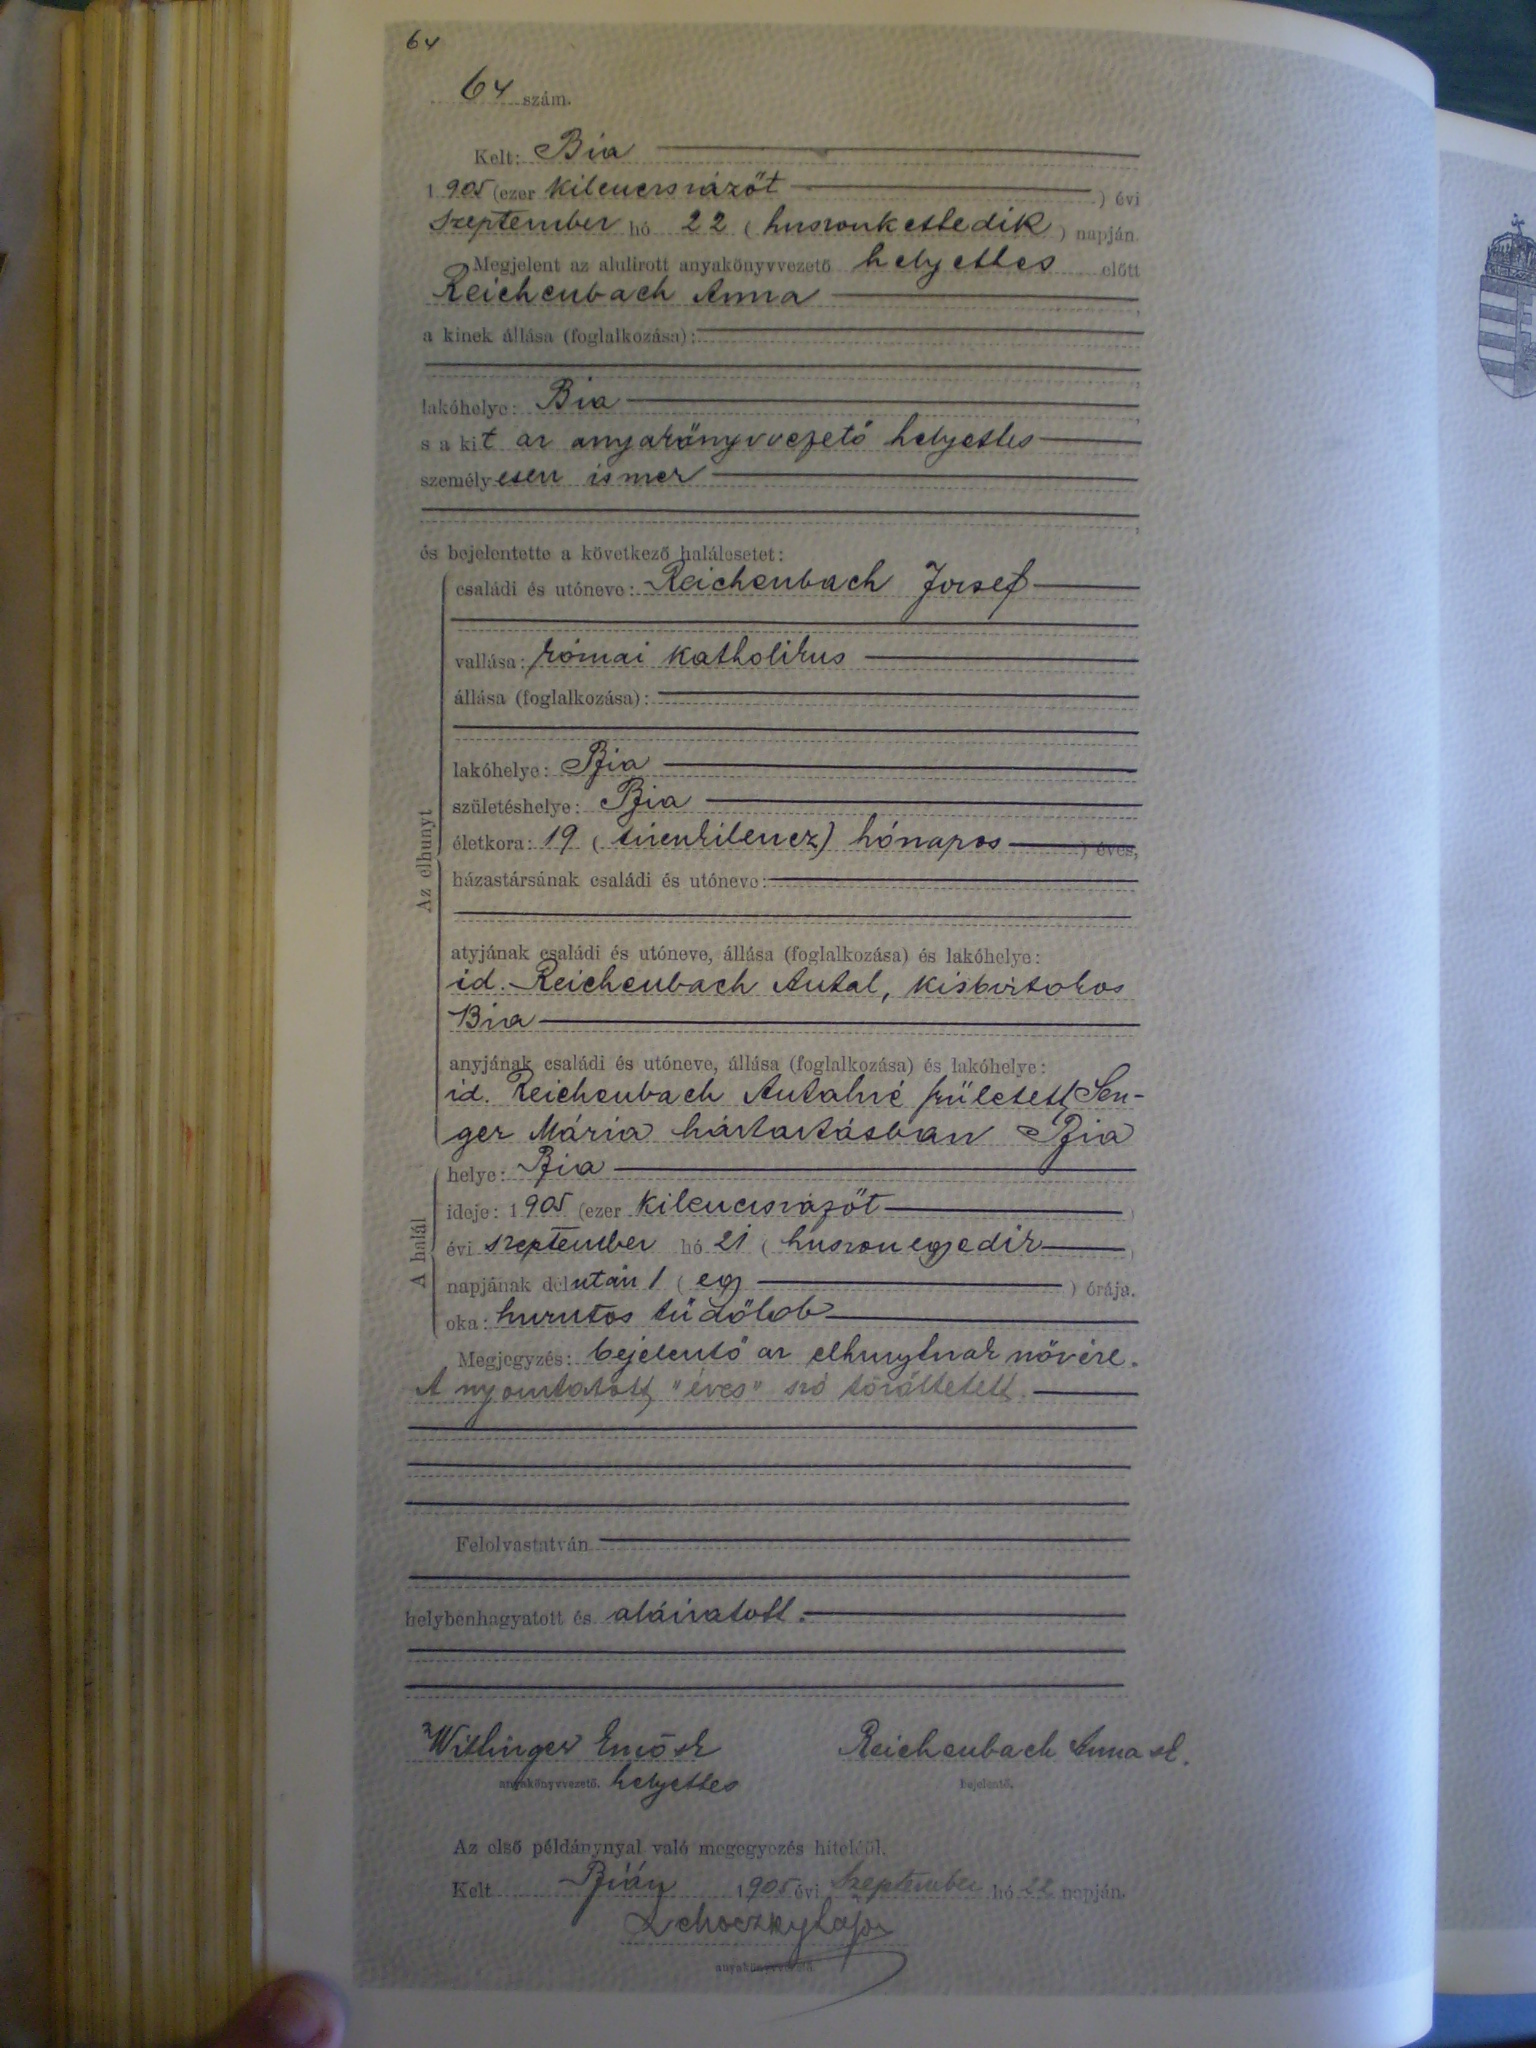 64
64 szám.
Kelt: Bia
1905 (ezer kilenczszázöt ) évi
szeptember hó 22 ( huszonkettedik ) napján.
Megjelent az alulirott anyakönyvvezető helyettes előtt
Reichenbach Anna ,
a kinek állása (foglalkozása):
lakóhelye: Bia
s a kit az anyakönyvvezető helyettes
személyesen ismer
és bejelentette a következő halálesetet:
Az elhunyt
családi és utóneve: Reichenbach József
vallása: római katholikus
állása (foglalkozása):
lakóhelye: Bia
születéshelye: Bia
életkora: 19 ( tizenkilencz) hónapos ) éves,
házastársának családi és utóneve:
atyjának családi és utóneve, állása (foglalkozása) és lakóhelye:
id. Reichenbach Antal, kisbirtokos
Bia
anyjának családi és utóneve, állása (foglalkozása) és lakóhelye:
id. Reichenbach Antalné született Sen-
ger Mária háztartásban Bia
A halál
helye: Bia
ideje: 1905 (ezer kilenczszázöt )
évi szeptember hó 21 ( huszonegyedik )
napjának délután 1 ( egy ) órája.
oka: hurutos tüdőlob
Megjegyzés: bejelentő az elhunytnak nővére.
A nyomtatott "éves" szó töröltetett.
Felolvastatván
helybenhagyatott és aláiratott.
Wittinger Ernő sk Reichenbach Anna sk.
anyakönyvvezető. helyettes bejelentő.
Az első példánynyal való megegyezés hiteléül.
Kelt Bián 1905 évi szeptember hó 22 napján.
anyakönyvvezető.